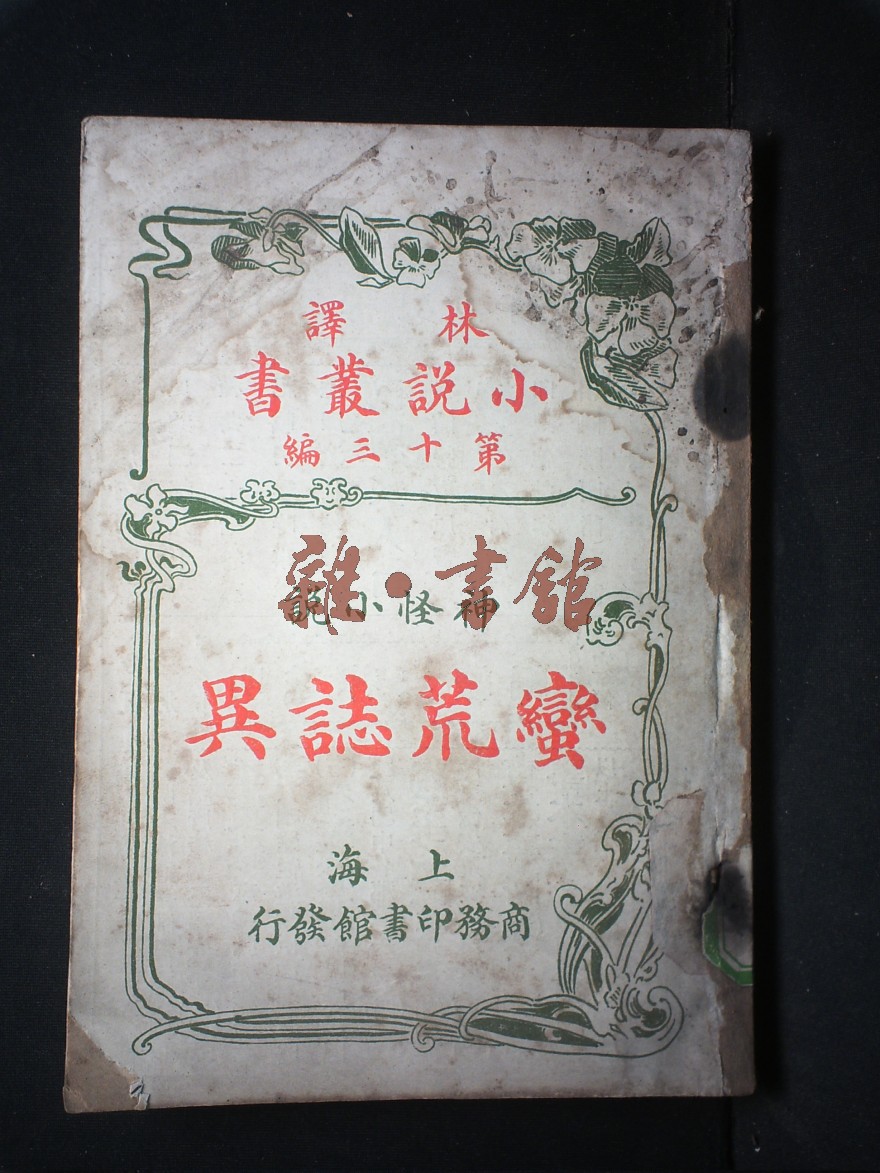 林譯
小說叢書
第十三編
神怪小說
雜·書館
蠻荒誌異
上海
商務印書館發行